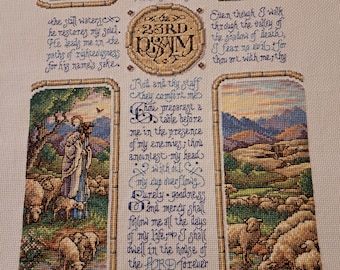 the still waters
he restores my soul.
He leads me in the
paths of righteousness
for his name's sake.
the
23RD
PSALM
Even though I walk
through the valley of
the shadow of death,
I fear no evil: for
thou are with me; thy
Rod and thy staff
they comfort me
Thou preparest a
table before
me in the presence
of my enemies; thou
anointest my head
with oil
my cup overflows.
Surely goodness
and mercy shall
follow me all the days
of my life; & I shall
dwell in the house
of the LORD forever